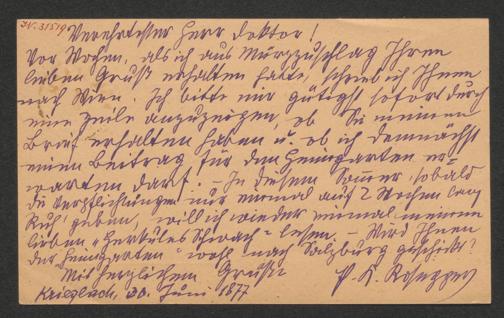 IN. 31519
Verehrtester Herr Doktor!
Vor Wochen, als ich aus Mürzzuschlag Ihren
lieben Gruß erhalten hatte, schrieb ich Ihnen
nach Wien. Ich bitte mir gütigst sofort durch
eine Zeile anzuzeigen, ob Sie meinen
Brief erhalten haben u. ob ich demnächst
einen Beitrag für den Heimgarten er-
warten darf. – In diesem Sommer, sobald
die Verpflichtungen nur einmal auf 2 Wochen lang
Ruh' geben, will ich wieder einmal meinen
lieben "Herkules Schwach" lesen. – Wird Ihnen
der "Heimgarten" wohl nach Salzburg geschickt?
Mit herzlichem Gruße
P. K. Rosegger
Krieglach, 20. Juni 1877